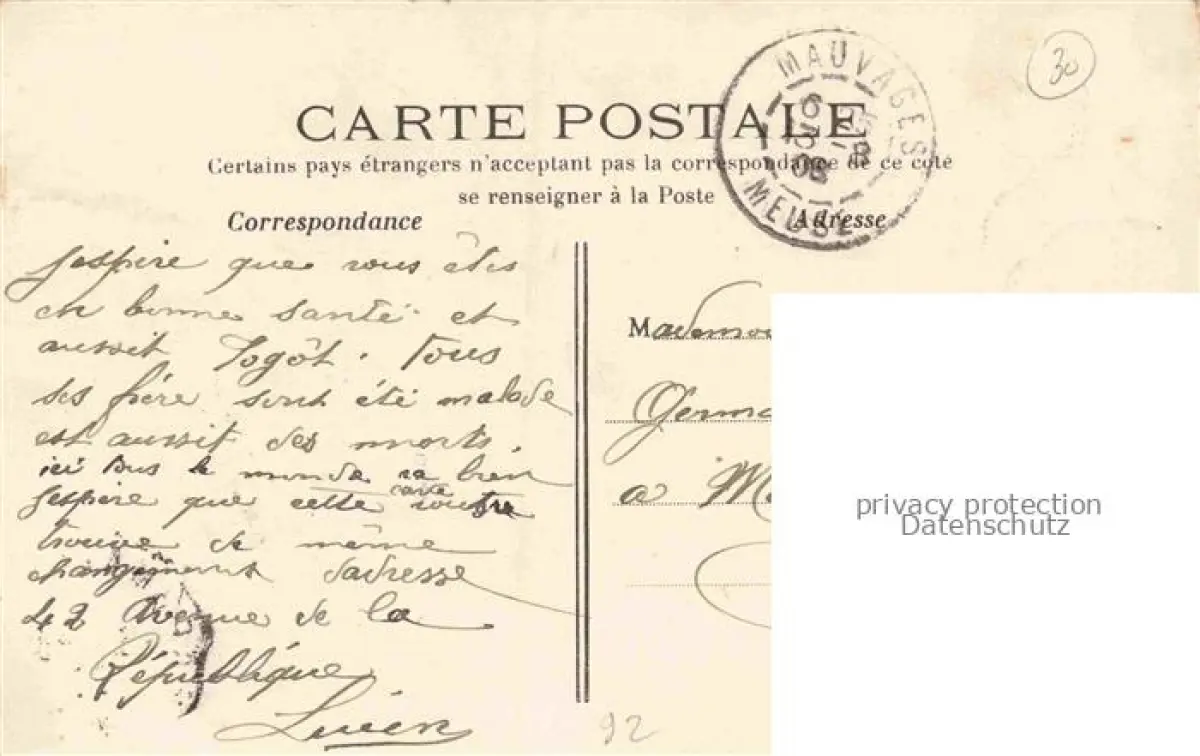 CARTE POSTALE
Certains pays étrangers n'acceptent pas la correspondance de ce coté
se renseigner à la Poste
MAUVAGES
MEUSE
30
Correspondance
J'espère que vous êtes
en bonne santé et
aussit Togôt. Tous
ses frère sont été malade
est aussit des morts.
ici tous le monde va bien
J'espère que cette carte voutre
trouve de même
changement d'adresse
42 Avenue de la
République
Lucien
Adresse
Mademoi
Germa
a M
92
privacy protection
Datenschutz